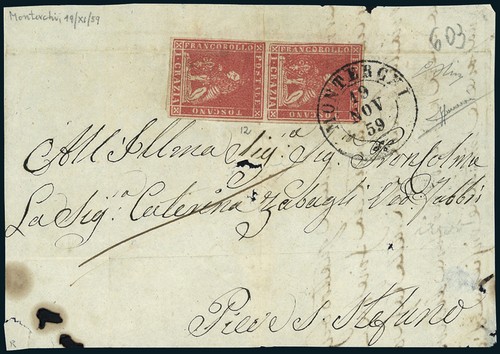 Monterchi, 19/XI/59
603
FRANCOBOLLO
POSTALE
TOSCANO
1 CRAZIA
FRANCOBOLLO
TOSCANO
1 CRAZIA
MONTERCHI
19
NOV
59
12
All Illma Sig.ra Sig.
La Sig.ra Caterina Zabagli Ved. Fabbri
Pieve S. Stefano